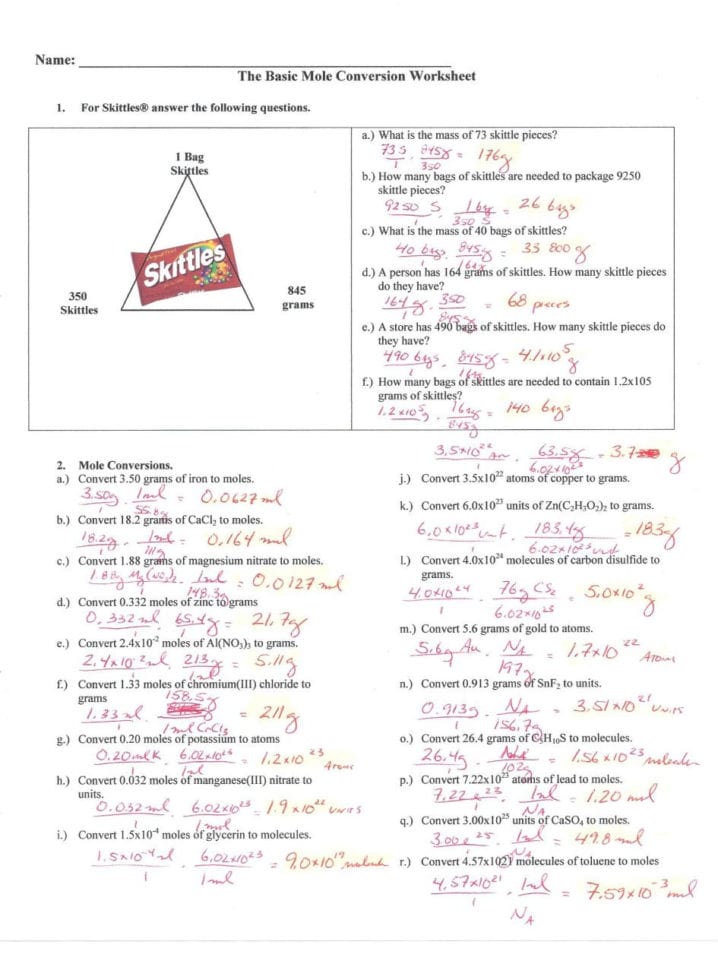 Name:
The Basic Mole Conversion Worksheet
1. For Skittles® answer the following questions.
1 Bag
Skittles
Skittles
350
Skittles
845
grams
a.) What is the mass of 73 skittle pieces?
73 S . 845g = 176g
1 350
b.) How many bags of skittles are needed to package 9250
skittle pieces?
9250 S . 1 bag = 26 bags
1 350 S
c.) What is the mass of 40 bags of skittles?
40 bags . 845g = 33 800 g
1 1 bag
d.) A person has 164 grams of skittles. How many skittle pieces
do they have?
164 g . 350 = 68 pieces
1 845g
e.) A store has 490 bags of skittles. How many skittle pieces do
they have?
490 bags . 845g = 4.1x10⁵ g
1 1 bag
f.) How many bags of skittles are needed to contain 1.2x105
grams of skittles?
1.2x10⁵g . 1 bag = 140 bags
845g
2. Mole Conversions.
a.) Convert 3.50 grams of iron to moles.
3.50g . 1ml = 0.0627 ml
55.8g
b.) Convert 18.2 grams of CaCl₂ to moles.
18.2g . 1ml = 0.164 ml
1 111g
c.) Convert 1.88 grams of magnesium nitrate to moles.
1.88g Mg(NO₃)₂ . 1ml = 0.0127 ml
148.3g
d.) Convert 0.332 moles of zinc to grams
0.332 ml . 65.4g = 21.7g
e.) Convert 2.4x10⁻² moles of Al(NO₃)₃ to grams.
2.4x10⁻² ml . 213g = 5.11g
f.) Convert 1.33 moles of chromium(III) chloride to
grams
158.5g
1.33 ml = 211g
1 1ml CrCl₃
g.) Convert 0.20 moles of potassium to atoms
0.20 ml K . 6.02x10²³ = 1.2x10²³ Atoms
1 1ml
h.) Convert 0.032 moles of manganese(III) nitrate to
units.
0.032 ml . 6.02x10²³ = 1.9x10²² units
1 1 mol
i.) Convert 1.5x10⁻⁴ moles of glycerin to molecules.
1.5x10⁻⁴ ml . 6.02x10²³ = 9.0x10¹⁹
1 1ml
3.5x10²² . 63.5g = 3.7 g
1 6.02x10²³
j.) Convert 3.5x10²² atoms of copper to grams.
k.) Convert 6.0x10²³ units of Zn(C₂H₃O₂)₂ to grams.
6.0x10²³ unit . 183.4g = 183g
1 6.02x10²³ unit
l.) Convert 4.0x10²⁴ molecules of carbon disulfide to
grams.
4.0x10²⁴ . 76g CS₂ = 5.0x10² g
1 6.02x10²³
m.) Convert 5.6 grams of gold to atoms.
5.6g Au . NA = 1.7x10²² Atoms
1 197g
n.) Convert 0.913 grams of SnF₂ to units.
0.913g . NA = 3.51x10²¹ units
1 156.7g
o.) Convert 26.4 grams of C₄H₁₀S to molecules.
26.4g . = 1.56x10²³
1 102g
p.) Convert 7.22x10²³ atoms of lead to moles.
7.22 e²³ . 1ml = 1.20 ml
1 NA
q.) Convert 3.00x10²⁵ units of CaSO₄ to moles.
3.00 e²⁵ . 1ml = 49.8 ml
1 NA
r.) Convert 4.57x1021 molecules of toluene to moles
4.57x10²¹ . 1ml = 7.59x10⁻³ ml
1 NA